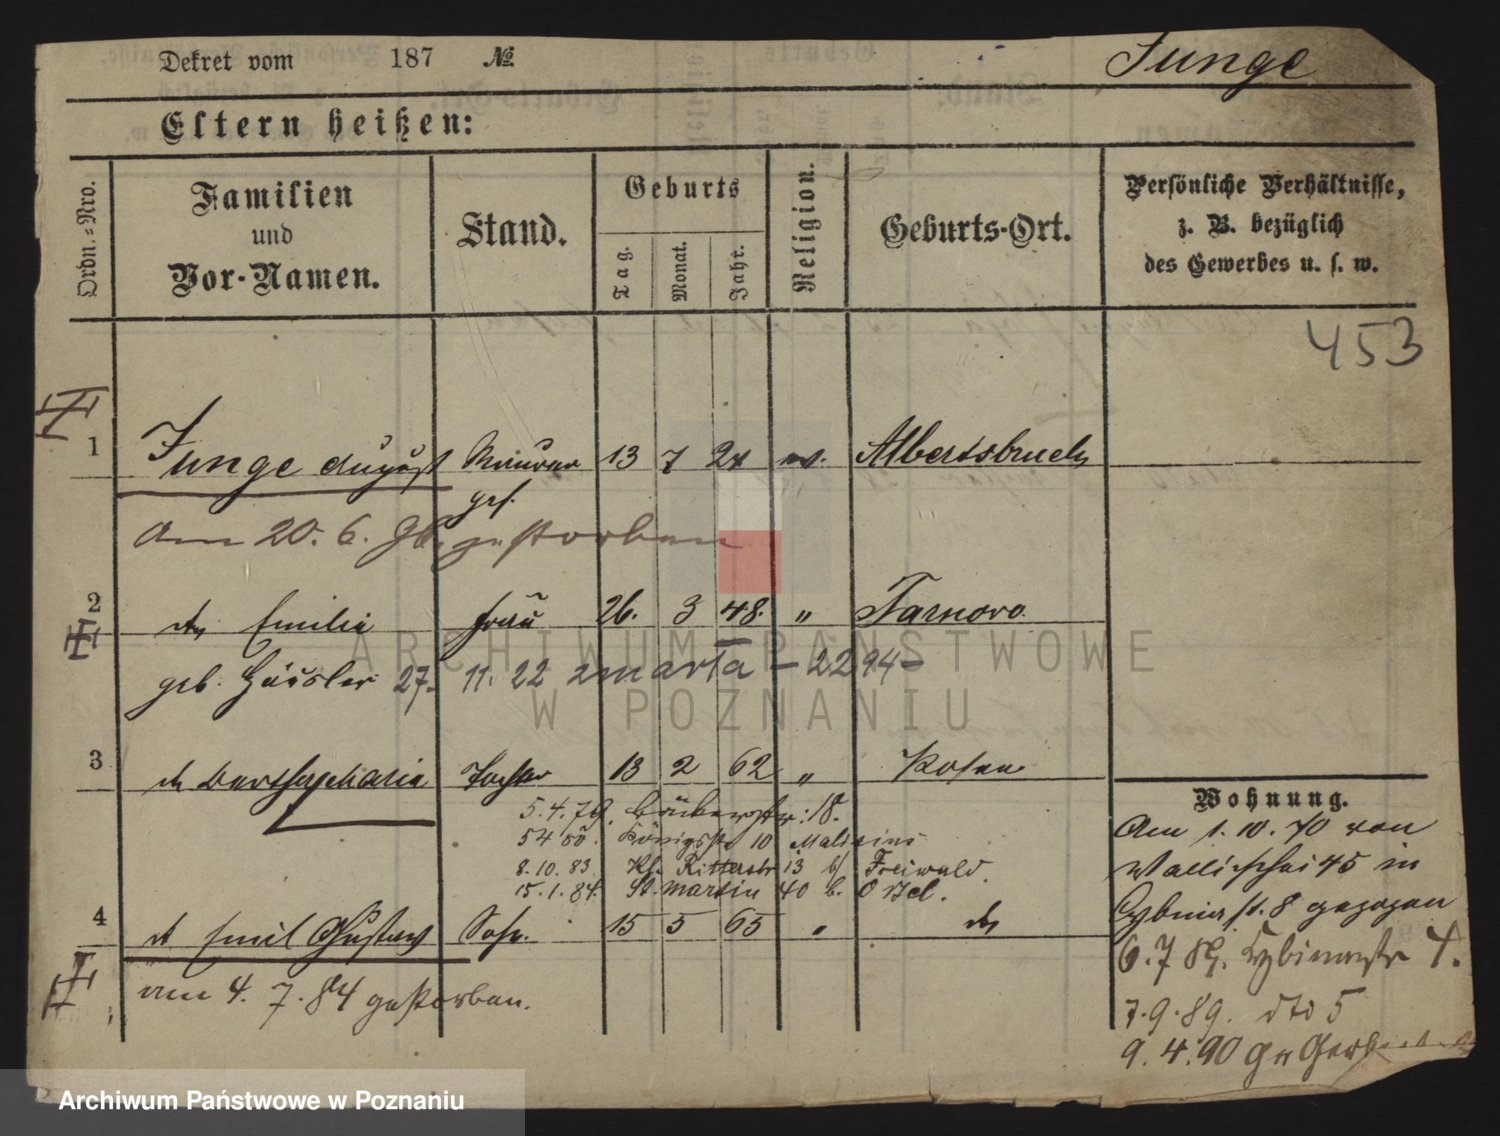 Dekret vom 187 №
Junge
Eltern heißen:
Ordn.=Nro.
Familien
und
Vor-Namen.
Stand.
Geburts
Tag.
Monat.
Jahr.
Religion.
Geburts-Ort.
Persönliche Verhältnisse,
z. B. bezüglich
des Gewerbes u. s. w.
453
1 Junge August Maurer 13 7 24 ev. Albertsbruch
ges.
am 20. 6. gestorben
2 Emilie Frau 26. 3 48. " Tarnowo
geb. Häusler 27. 11. 22 zmarła - 2294 -
3 Bertha Maria Tochter 13 2 62 " Posen
5. 4. 79. 18.
Königsstr 10
8. 10. 83. Kl. Ritterstr 13 b/ Freiwald.
15. 1. 84. St. Martin 40 b.
4 Emil Gustav Sohn. 15 5 65 "
am 4. 7. 84 gestorben.
Wohnung.
Am 1. 10. 70 von
Wallischei 45 in
Cybinastr. 8 gezogen
6. 7 Cybinastr 4.
7. 9. 89. dto 5
9. 4. 90 Gr Gerber
ARCHIWUM PAŃSTWOWE
W POZNANIU
Archiwum Państwowe w Poznaniu